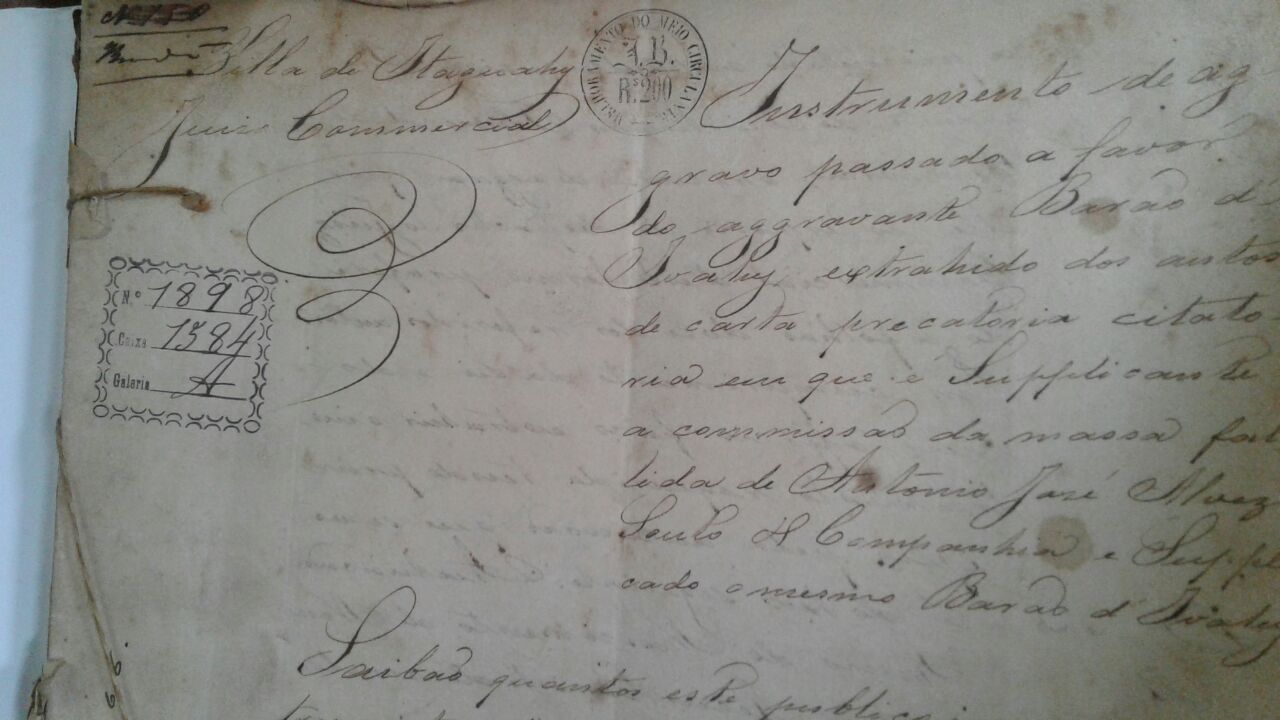 Villa de Itaguahy
Juizo Commercial
MELHORAMENTO DO MEIO CIRCULANTE
J.B.
Rs 200
Instrumento de ag-
gravo passado a favor
do aggravante Barão d'
Ivahy, extrahido dos autos
de carta precatoria citato
ria em que é Supplicante
a commissão da massa fal
lida de Antonio José Alvez
Souto & Companhia e Suppli
cado o mesmo Barão d'Ivahy
N.º 1898
Caixa 1384
Galeria A
Saibão quantos este publico